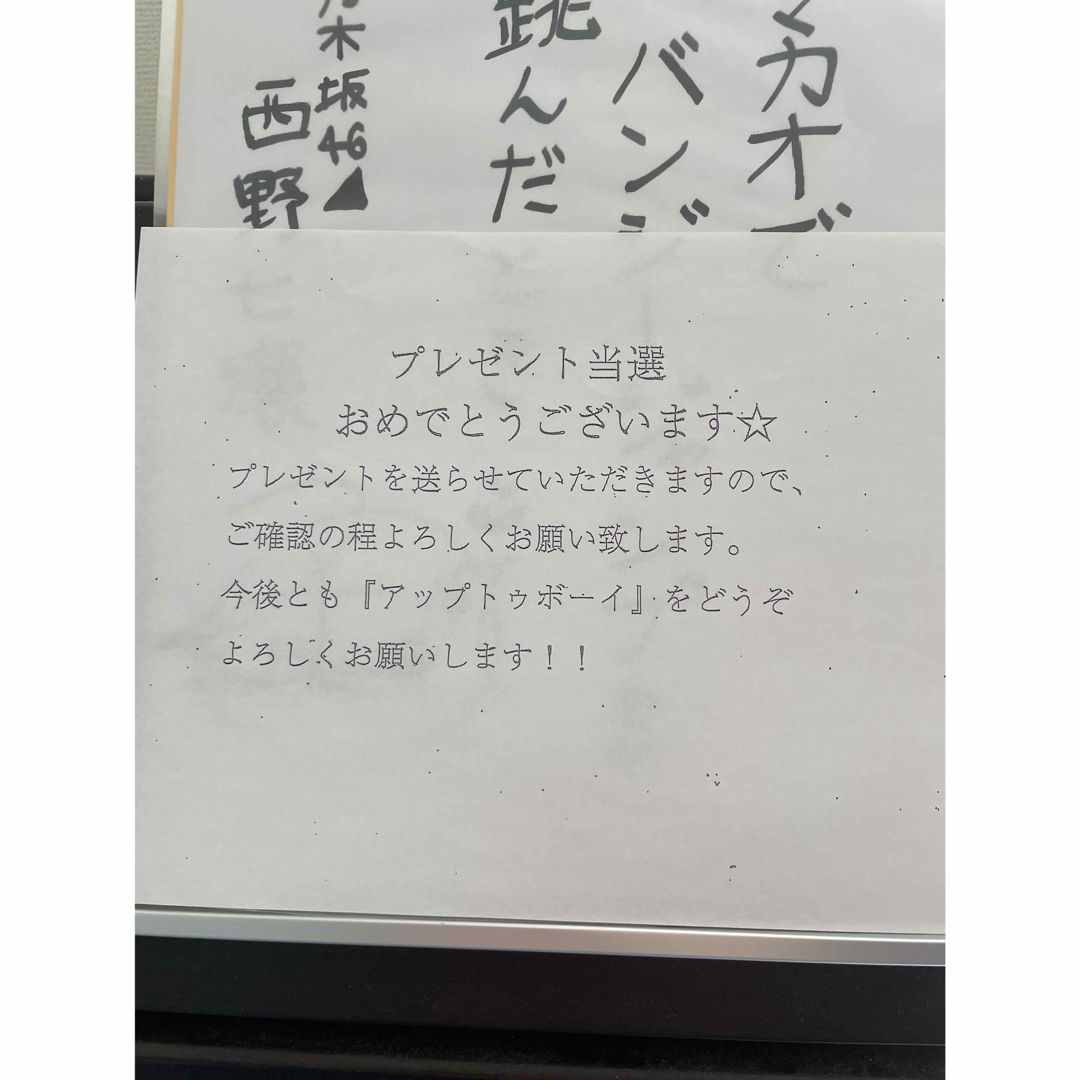 マカオで
バンジ
跳んだ
乃木坂46
西野
プレゼント当選
おめでとうございます☆
プレゼントを送らせていただきますので、
ご確認の程よろしくお願い致します。
今後とも『アップトゥボーイ』をどうぞ
よろしくお願いします！！